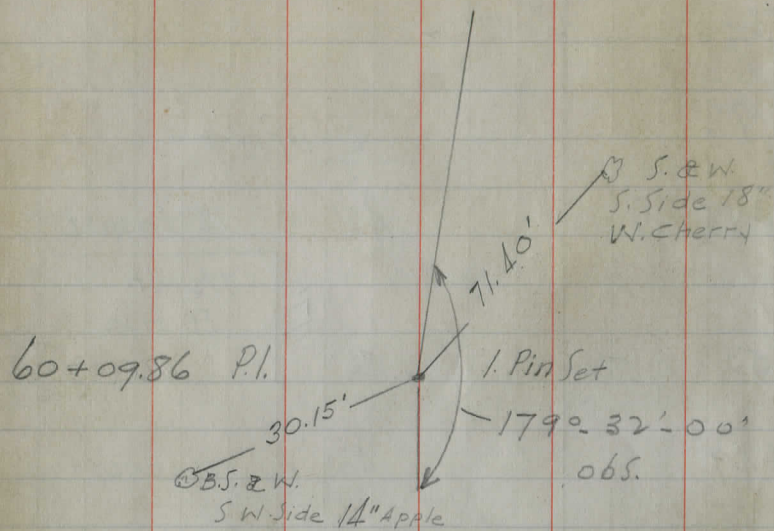 S. & W.
S. Side 18"
W. Cherry
71.40'
60+09.86 P.I.
I. Pin Set
30.15'
179°-32'-00"
obs.
B.S. & W.
S W. Side 14" Apple